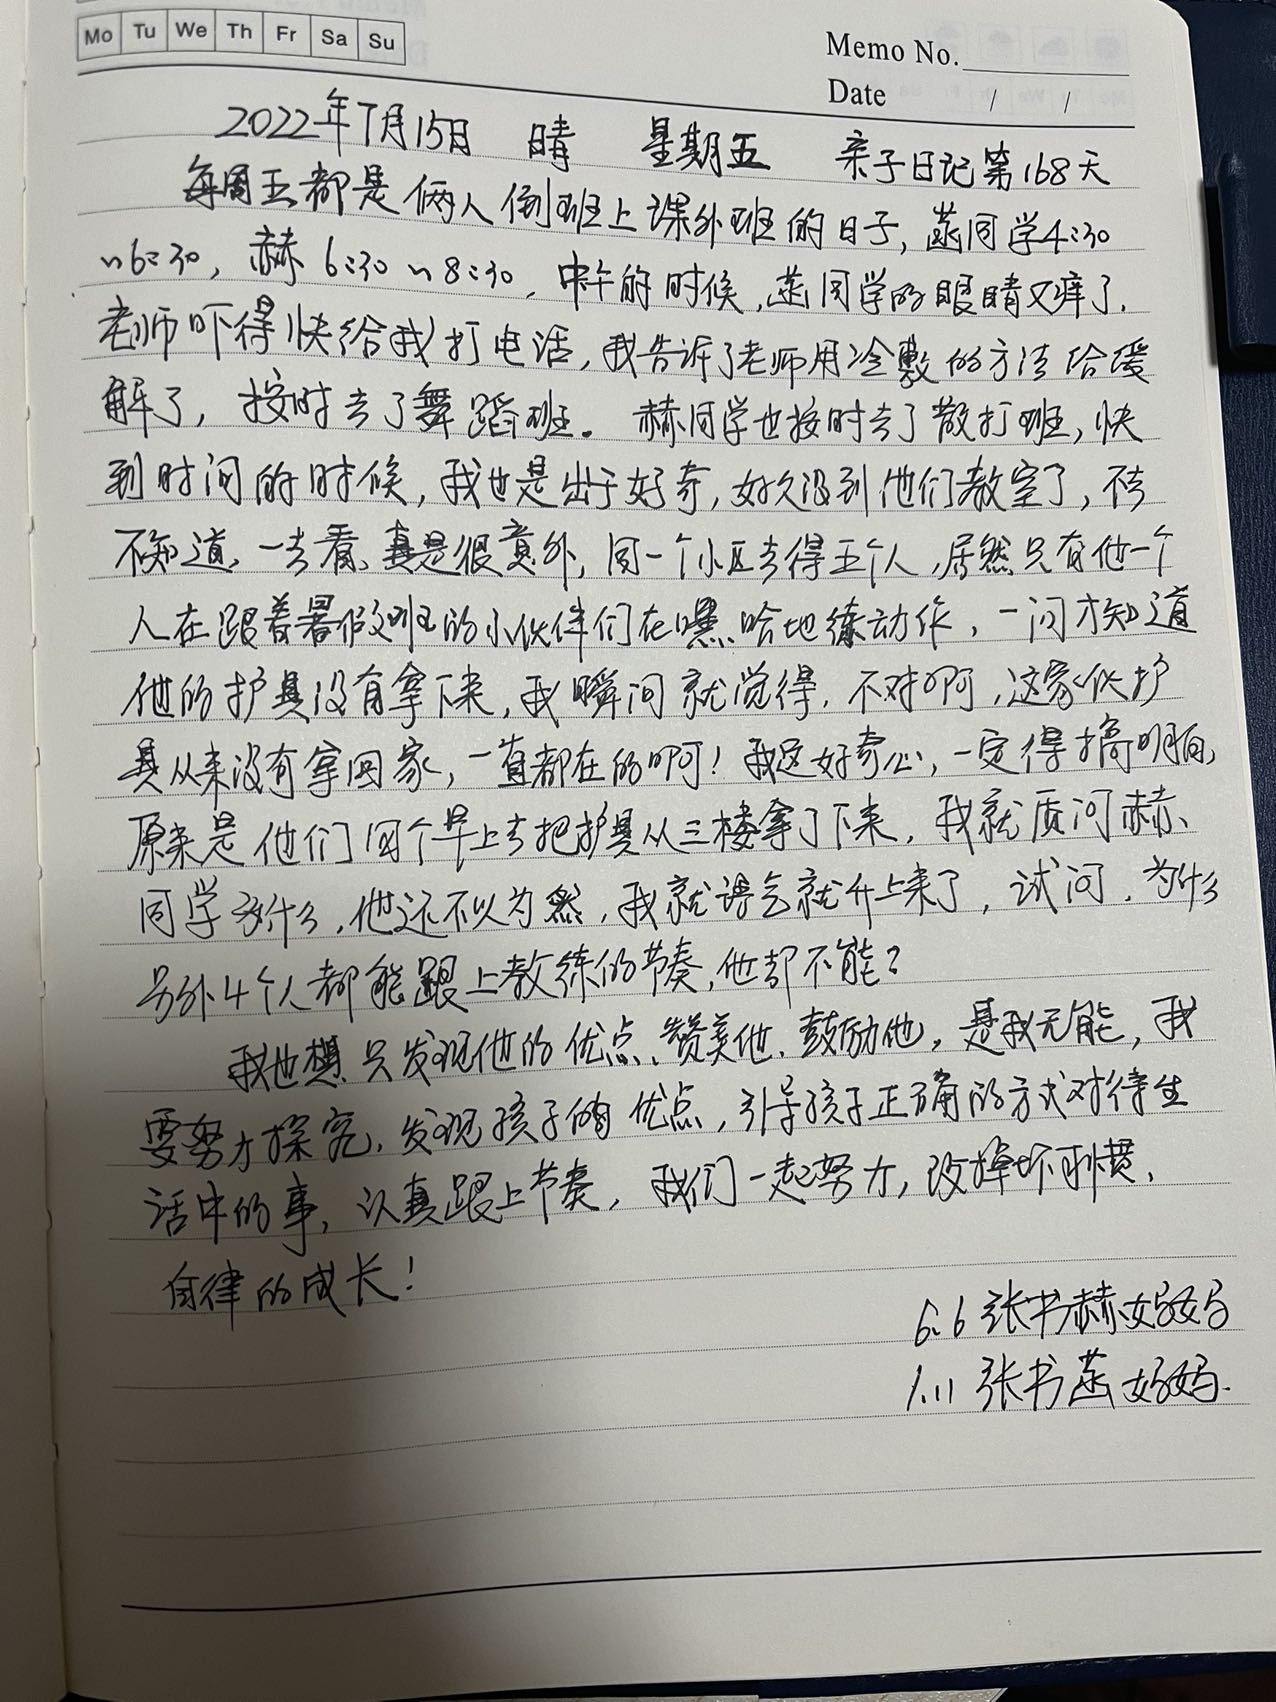 Mo Tu We Th Fr Sa Su
Memo No.
Date / /
2022年7月15日 晴 星期五 亲子日记第168天
每周五都是俩人倒班上课外班的日子，菡同学4:30
~6:30，赫6:30~8:30，中午的时候，菡同学的眼睛又痒了，
老师吓得快给我打电话，我告诉了老师用冷敷的方法给缓
解了，按时去了舞蹈班。赫同学也按时去了散打班，快
到时间的时候，我也是出于好奇，好久没到他们教室了，不去
不知道，一去看，真是很意外，同一个小区去得五个人，居然只有他一个
人在跟着暑假班的小伙伴们在嘿哈地练动作，一问才知道
他的护具没有拿下来，我瞬间就觉得，不对啊，这家伙护
具从来没有拿回家，一直都在的啊！我这好奇心，一定得搞明白，
原来是他们同个早上去把护具从三楼拿了下来，我就质问赫
同学为什么，他还不以为然，我就语气就升上来了，试问，为什么
另外4个人都能跟上教练的节奏，他却不能？
我也想只发现他的优点、赞美他、鼓励他，是我无能，我
要努力探究，发现孩子的优点，引导孩子正确的方式对待生
活中的事，认真跟上节奏，我们一起努力，改掉坏习惯，
自律的成长！
6.6 张书赫妈妈
1.11 张书菡妈妈